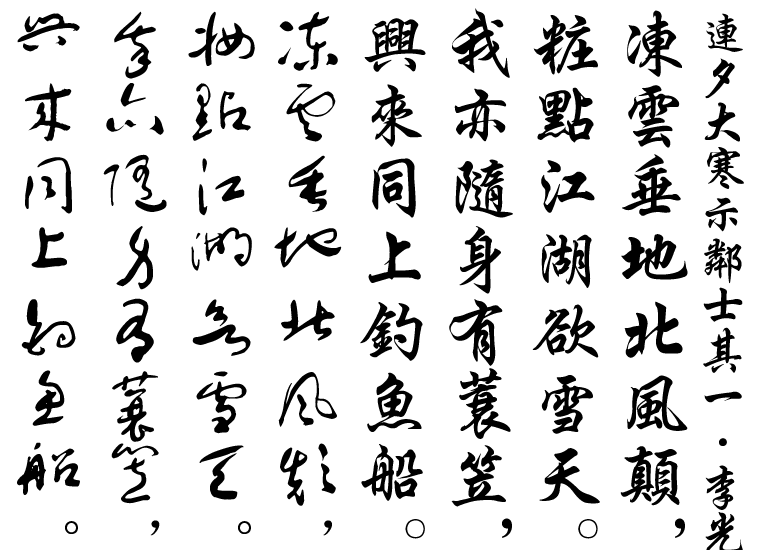 連夕大寒示鄰士其一·李光
凍雲垂地北風顛，
粧點江湖欲雪天。
我亦隨身有蓑笠，
興來同上釣魚船。
凍雲垂地北風顛，
妝點江湖欲雪天。
我亦隨身有蓑笠，
興來同上釣魚船。